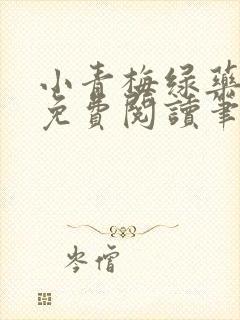 小青梅绿药
免费阅读笔
岑僧